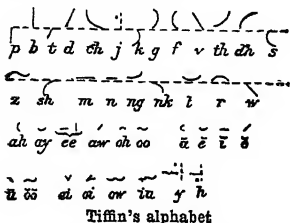 p b t d ch j k g f v th dh s
z sh m n ng nk l r w
ah ay ee aw oh oo ă ĕ ĭ ŏ
ŭ ŏŏ ei oi ow iu y h
Tiffin's alphabet